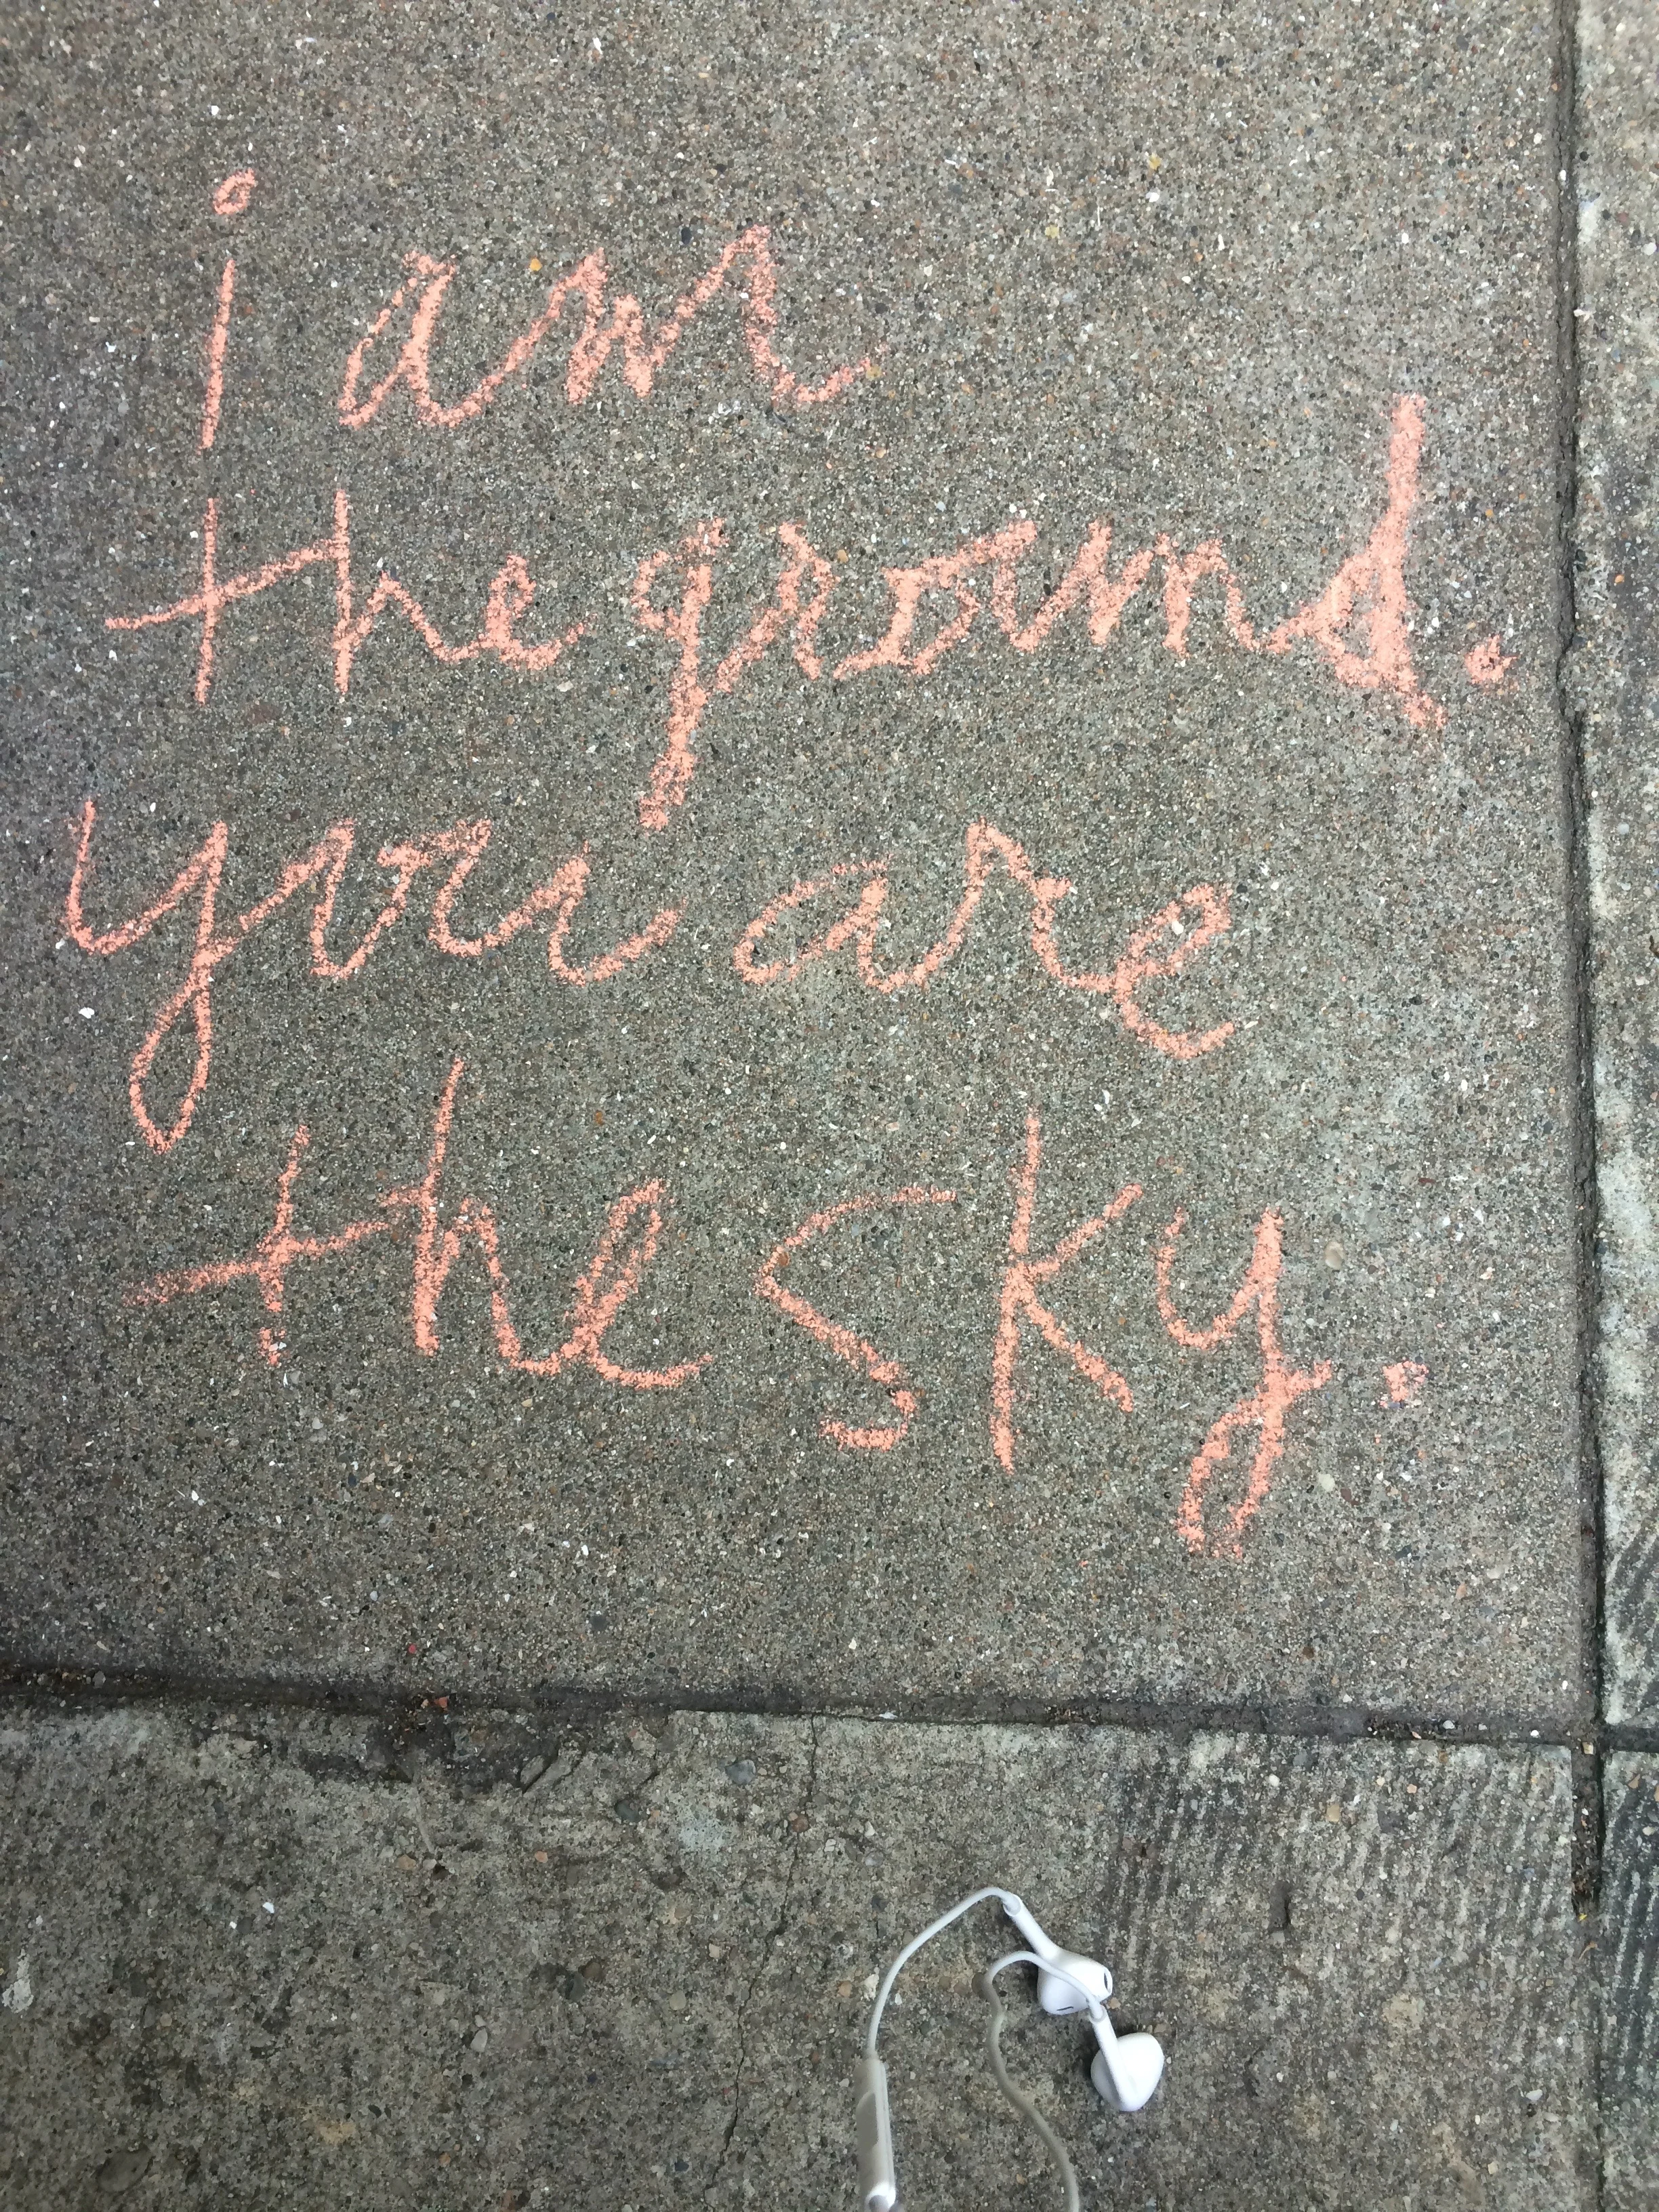 i am
the ground.
you are
the sky.